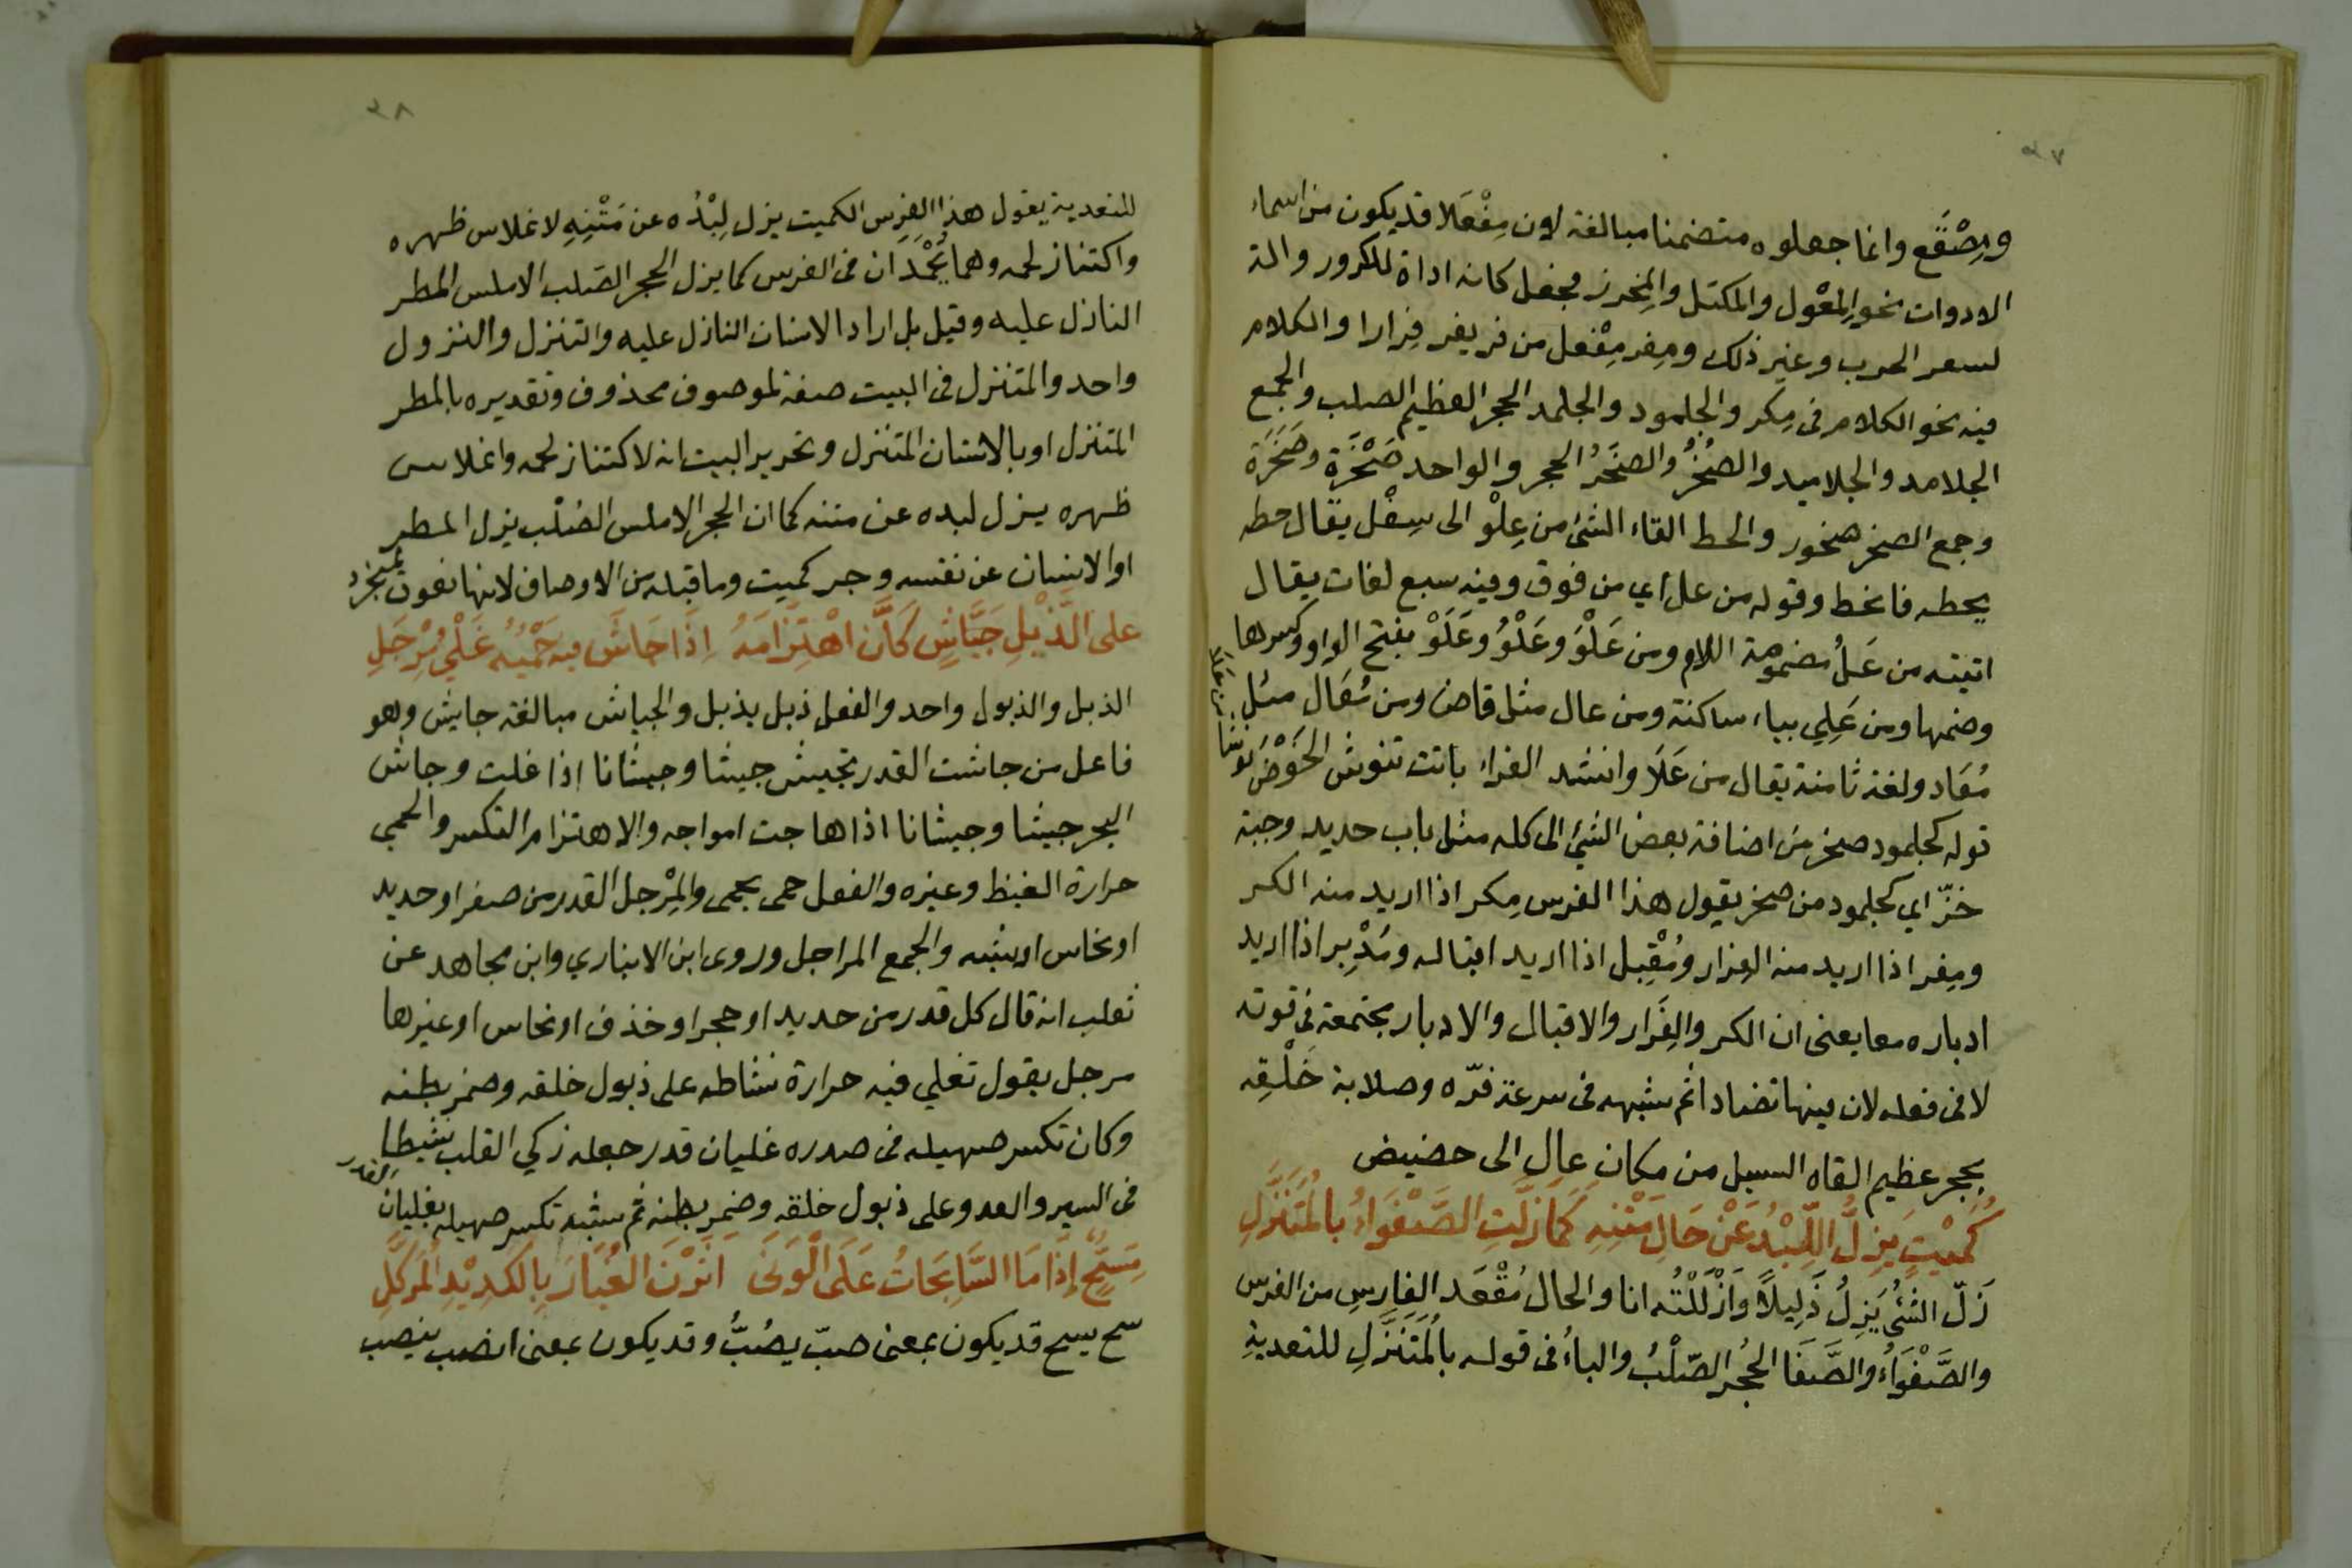 ٣٧
ومِصْقَع وانما جعلوه متضمنا مبالغة لان مِفْعَلا قد يكون من اسماء
الادوات نحو المِعْول والمكتل والمِخرز فجعل كانه اداة للكرور والة
لسعر الحرب وغير ذلك ومِفر مِفْعل من فر يفر فِرارا والكلام
فيه نحو الكلام فى مِكر والجلمود والجلمد الحجر العظيم الصلب والجمع
الجلامد والجلاميد والصَخْرُ والصَخَرُ الحجر والواحد صَخْرَة وصَخَرَة
وجمع الصخر صخور والحط القاء الشئ من عِلْو الى سِفْل يقال حطه
يحطه فانحط وقوله من عل اي من فوق وفيه سبع لغات يقال
اتيته من عَلُ مضمومة اللام ومن عَلْوَ وعَلْوُ وعَلَوْ بفتح الواو وكسرها
وضمها ومن عَلِي بياء ساكنة ومن عال مثل قاض ومن مُعَال مثل
مُعَاد ولغة ثامنة يقال من عَلَا وانشد الفراء باتت تنوش الحَوْضَ نوشا من علا
قوله كجلمود صخر من اضافة بعض الشئ الى كله مثل باب حديد وجبة
خزّ اي كجلمود من صخر يقول هذا الفرس مِكر اذا اريد منه الكر
ومِفر اذا اريد منه الفِرار ومُقْبِل اذا اريد اقباله ومُدْبِر اذا اريد
ادباره معا يعنى ان الكر والفِرَار والاقبال والادبار مجتمعة فى قوته
لا فى فعله لان بينها تضادا ثم شبهه فى سرعة فرّه وصلابة خَلْقِه
بحجر عظيم القاه السيل من مكان عالٍ الى حضيض
كُمَيْتٍ يَزِلُّ اللِّبْدُ عَنْ حَالِ مَتْنِهِ كَمَا زَلَّتِ الصَّفْوَاءُ بالمُتَنَزَّلِ
زَلّ الشئُ يَزِلُ زَلِيلاً وَاَزْلَلْتُه انا والحال مُقْعَد الفارِسِ من الفرس
والصَّفْوَاءُ والصَّفَا الحُجر الصّلْبُ والباءُ فى قوله بالمُتَنَزَّلِ للتعديةِ
٣٨
للتعدية يقول هذا الفرس الكميت يزل لِبْدُه عن مَتْنِهِ لانملاس ظهره
واكتناز لحمه وهما يُحْمَدَان فى الفرس كما يزل الحجر الصَلب الاملس المطر
النازل عليه وقيل بل اراد الانسان النازل عليه والتنزل والنزول
واحد والمتنزل فى البيت صفة لموصوف محذوف وتقديره بالمطر
المتنزل او بالانسان المتنزل وتحرير البيت انه لاكتناز لحمه وانملاس
ظهره يزل لبده عن متنه كما ان الحجر الاملس الصُلْب يزل المطر
او الانسان عن نفسه وجر كميت وما قبله من الاوصاف لانها نعوت لمنجرد
على الذَّبْلِ جَيَّاشٍ كَأَنَّ اهْتِزَامَهُ اِذَا جَاشَ فيه حَمْيُهُ غَلْيُ مِرْجَلِ
الذبل والذبول واحد والفعل ذبل يذبل والجياش مبالغة جايش وهو
فاعل من جاشت القدر تجيش جيشا وجيشانا اذا غلت وجاش
البحر جيشا وجيشانا اذا هاجت امواجه والاهتزام التكسر والحمى
حرارة الغيظ وغيره والفعل حمى يحمى والمِرْجل القدر من صفر او حديد
او نحاس او شبه والجمع المراجل وروى ابن الانباري وابن مجاهد عن
ثعلب انه قال كل قدر من حديد او حجر او خذف او نحاس او غيرها
مرجل يقول تغلي فيه حرارة نشاطه على ذبول خلقه وضمر بطنه
وكان تكسر صهيله فى صدره غليان قدر جعله زكي القلب نشيطا
فى السير والعدو على ذبول خلقه وضمر بطنه ثم شبه تكسر صهيله بغليان القدر
مَسَحٍّ إِذَا مَا السَّابِحَاتُ عَلَى الْوَنَى اَثَرْنَ الغُبَارَ بِالكَدِيْدِ المُرَكَّلِ
سح يسح قد يكون بمعنى صبّ يصُبُّ وقد يكون بمعنى انصب ينصب